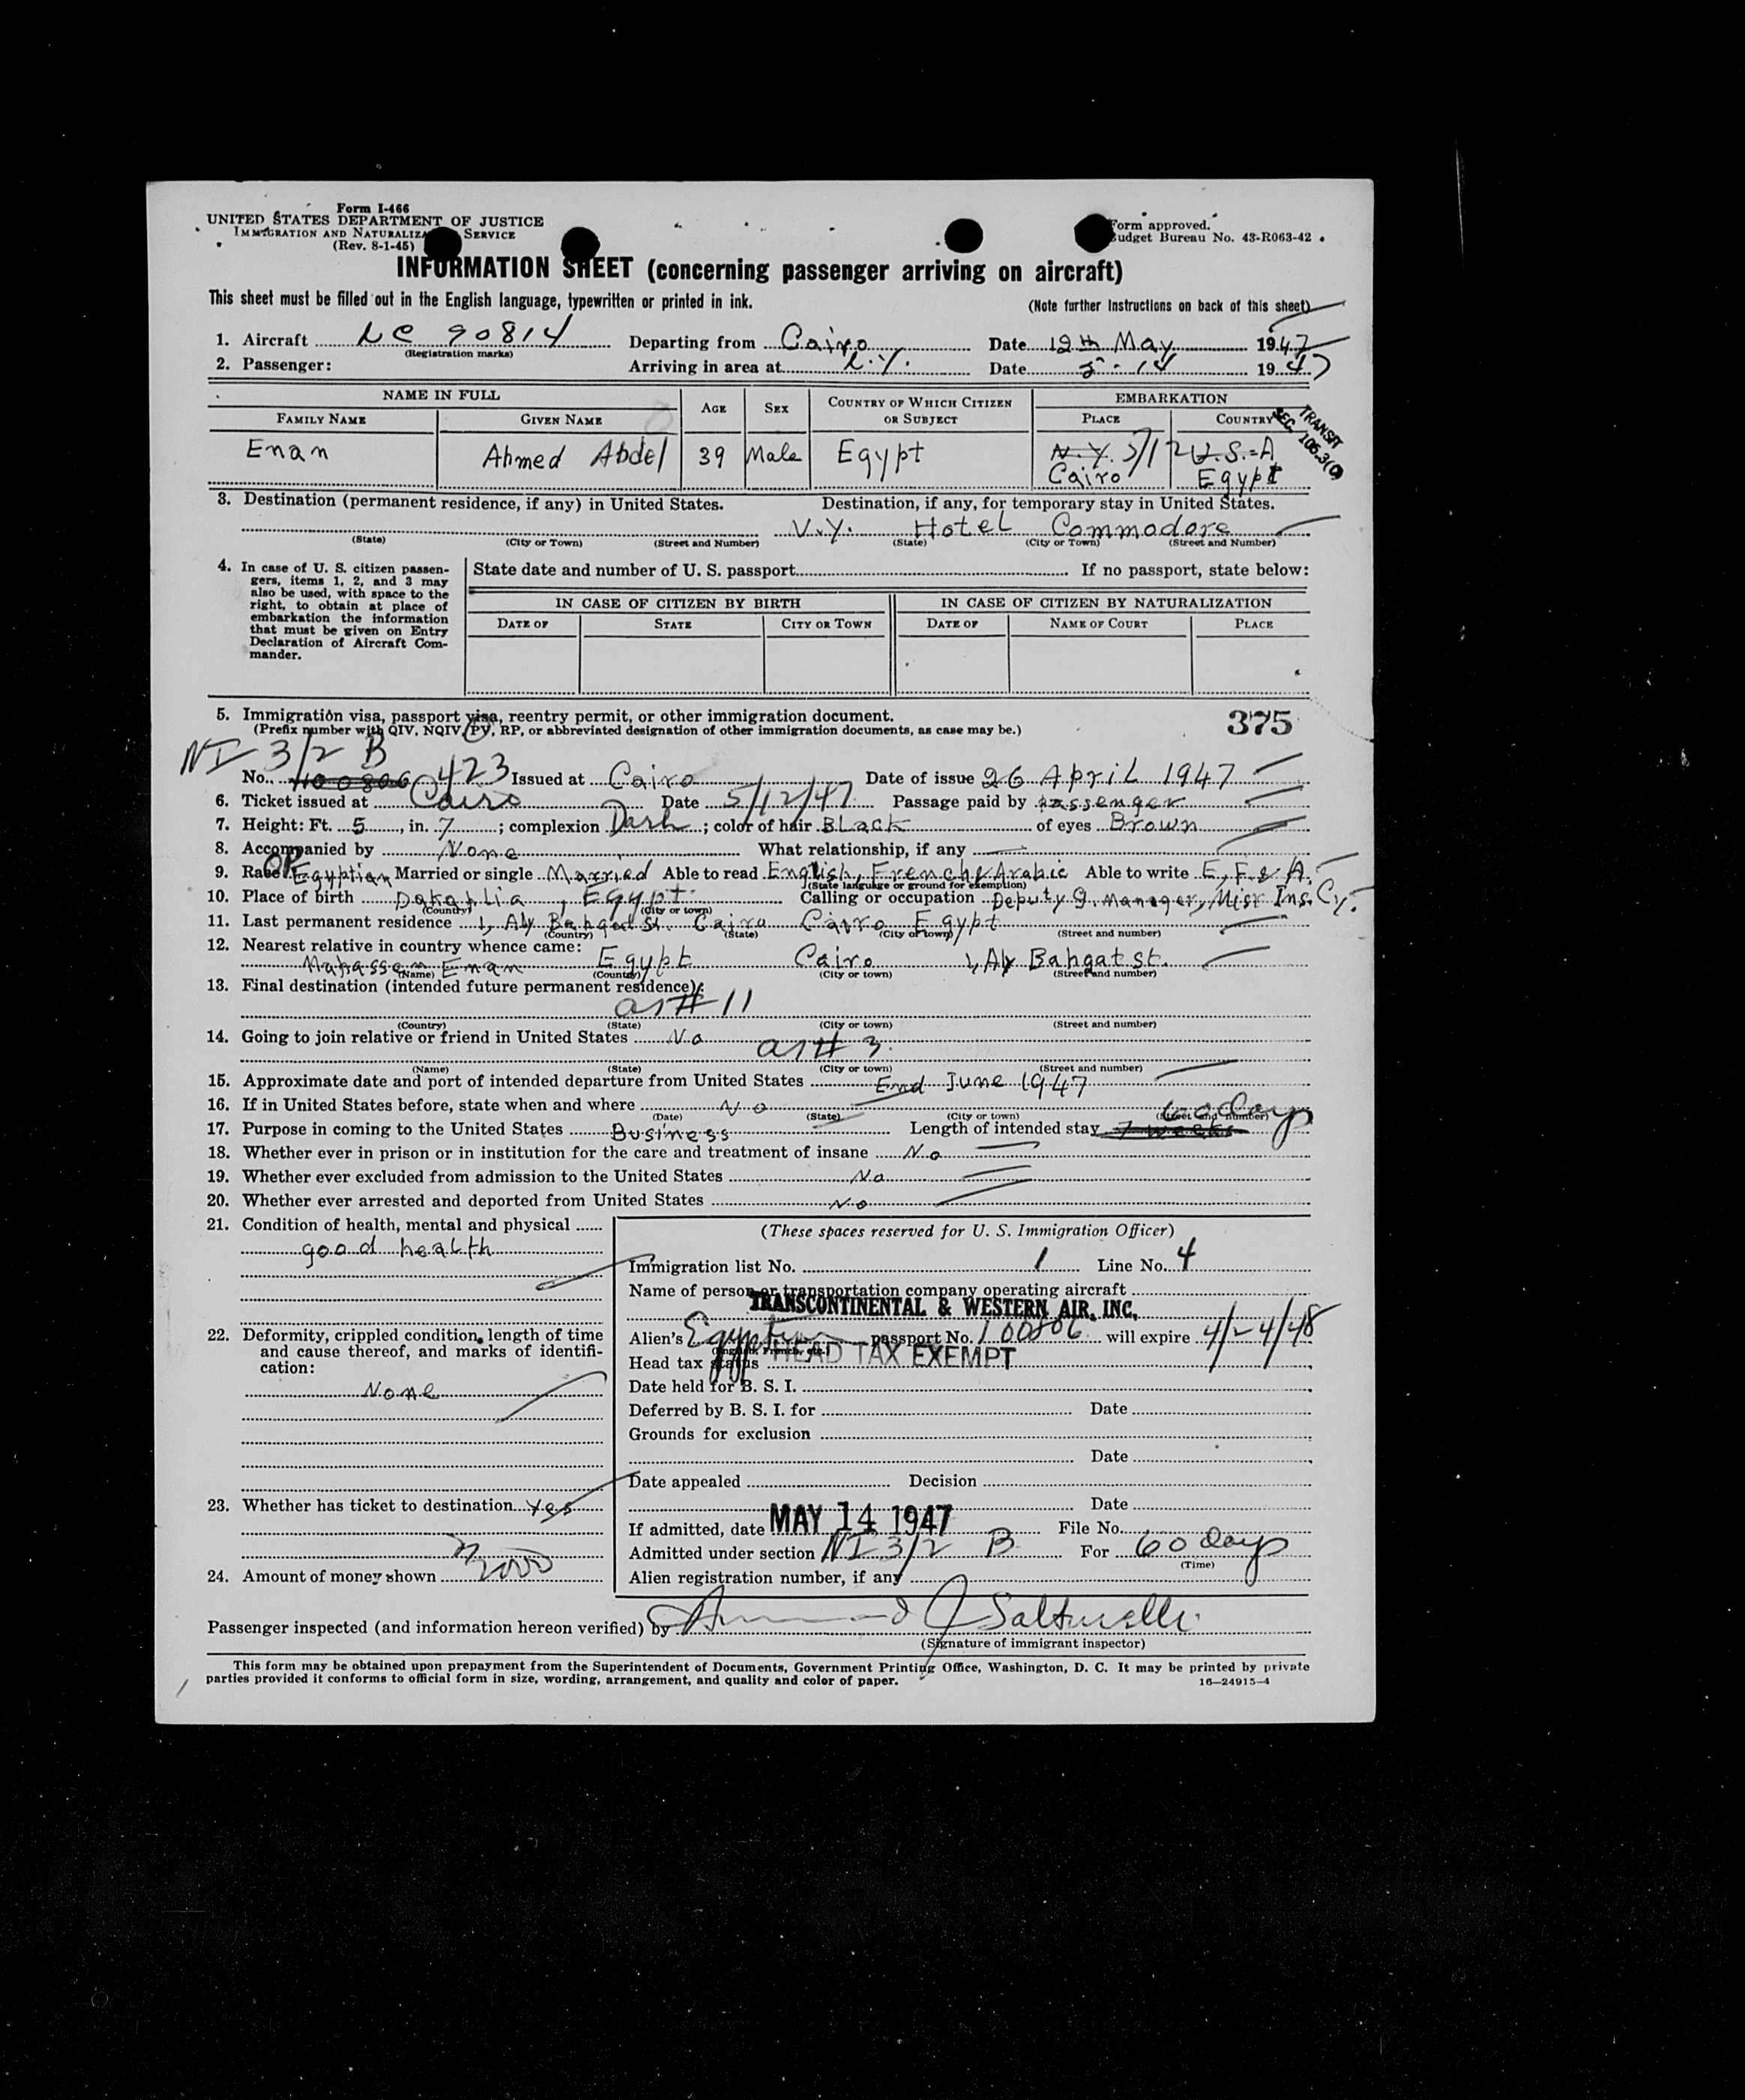 Form I-466
UNITED STATES DEPARTMENT OF JUSTICE
IMMIGRATION AND NATURALIZA SERVICE
(Rev. 8-1-45)
Form approved.
Budget Bureau No. 43-R063-42
INFORMATION SHEET (concerning passenger arriving on aircraft)
This sheet must be filled out in the English language, typewritten or printed in ink. (Note further instructions on back of this sheet)
1. Aircraft NC 90814 Departing from Cairo Date 12th May 1947
(Registration marks)
2. Passenger: Arriving in area at N.Y. Date 5-14 1947
NAME IN FULL AGE SEX COUNTRY OF WHICH CITIZEN OR SUBJECT EMBARKATION
FAMILY NAME GIVEN NAME PLACE COUNTRY
TRANSIT
SEC. 105.3(C)
Enan Ahmed Abdel 39 Male Egypt N.Y. 5/12 U.S.A
Cairo Egypt
3. Destination (permanent residence, if any) in United States. Destination, if any, for temporary stay in United States.
N.Y. Hotel Commodore
(State) (City or Town) (Street and Number) (State) (City or Town) (Street and Number)
4. In case of U. S. citizen passengers, items 1, 2, and 3 may also be used, with space to the right, to obtain at place of embarkation the information that must be given on Entry Declaration of Aircraft Commander.
State date and number of U. S. passport If no passport, state below:
IN CASE OF CITIZEN BY BIRTH IN CASE OF CITIZEN BY NATURALIZATION
DATE OF STATE CITY OR TOWN DATE OF NAME OF COURT PLACE
5. Immigration visa, passport visa, reentry permit, or other immigration document. 375
(Prefix number with QIV, NQIV, PV, RP, or abbreviated designation of other immigration documents, as case may be.)
NI 3/2 B
No. 100806 423 Issued at Cairo Date of issue 26 April 1947
6. Ticket issued at Cairo Date 5/12/47 Passage paid by passenger
7. Height: Ft. 5, in. 7; complexion Dark; color of hair Black of eyes Brown
8. Accompanied by None What relationship, if any
9. Race Egyptian Married or single Married Able to read English, French & Arabic Able to write E, F. & A.
(State language or ground for exemption)
10. Place of birth Dakahlia, Egypt. Calling or occupation Deputy G. Manager, Misr Ins. Cy.
(Country) (City or town)
11. Last permanent residence 1, Aly Bahgat St. Cairo Cairo Egypt
(Country) (State) (City or town) (Street and number)
12. Nearest relative in country whence came:
Mahassen Enan Egypt Cairo 1, Aly Bahgat st.
(Name) (Country) (City or town) (Street and number)
13. Final destination (intended future permanent residence):
as # 11
(Country) (State) (City or town) (Street and number)
14. Going to join relative or friend in United States No
as # 3.
(Name) (State) (City or town) (Street and number)
15. Approximate date and port of intended departure from United States End June 1947
16. If in United States before, state when and where No
(Date) (State) (City or town) (Street and number)
60 days
17. Purpose in coming to the United States Business Length of intended stay 7 weeks
18. Whether ever in prison or in institution for the care and treatment of insane No
19. Whether ever excluded from admission to the United States No
20. Whether ever arrested and deported from United States No
21. Condition of health, mental and physical
good health
22. Deformity, crippled condition, length of time and cause thereof, and marks of identification:
None
23. Whether has ticket to destination Yes
24. Amount of money shown 2000
(These spaces reserved for U. S. Immigration Officer)
Immigration list No. 1 Line No. 4
Name of person or transportation company operating aircraft
TRANSCONTINENTAL & WESTERN AIR, INC.
Alien's Egyptian passport No. 100806 will expire 4/24/48
(English, French, etc.)
Head tax status HEAD TAX EXEMPT
Date held for B. S. I.
Deferred by B. S. I. for Date
Grounds for exclusion
Date
Date appealed Decision
Date
If admitted, date MAY 14 1947 File No.
Admitted under section NI 3/2 B For 60 days
(Time)
Alien registration number, if any
Passenger inspected (and information hereon verified) by
(Signature of immigrant inspector)
This form may be obtained upon prepayment from the Superintendent of Documents, Government Printing Office, Washington, D. C. It may be printed by private
parties provided it conforms to official form in size, wording, arrangement, and quality and color of paper. 16—24915-4